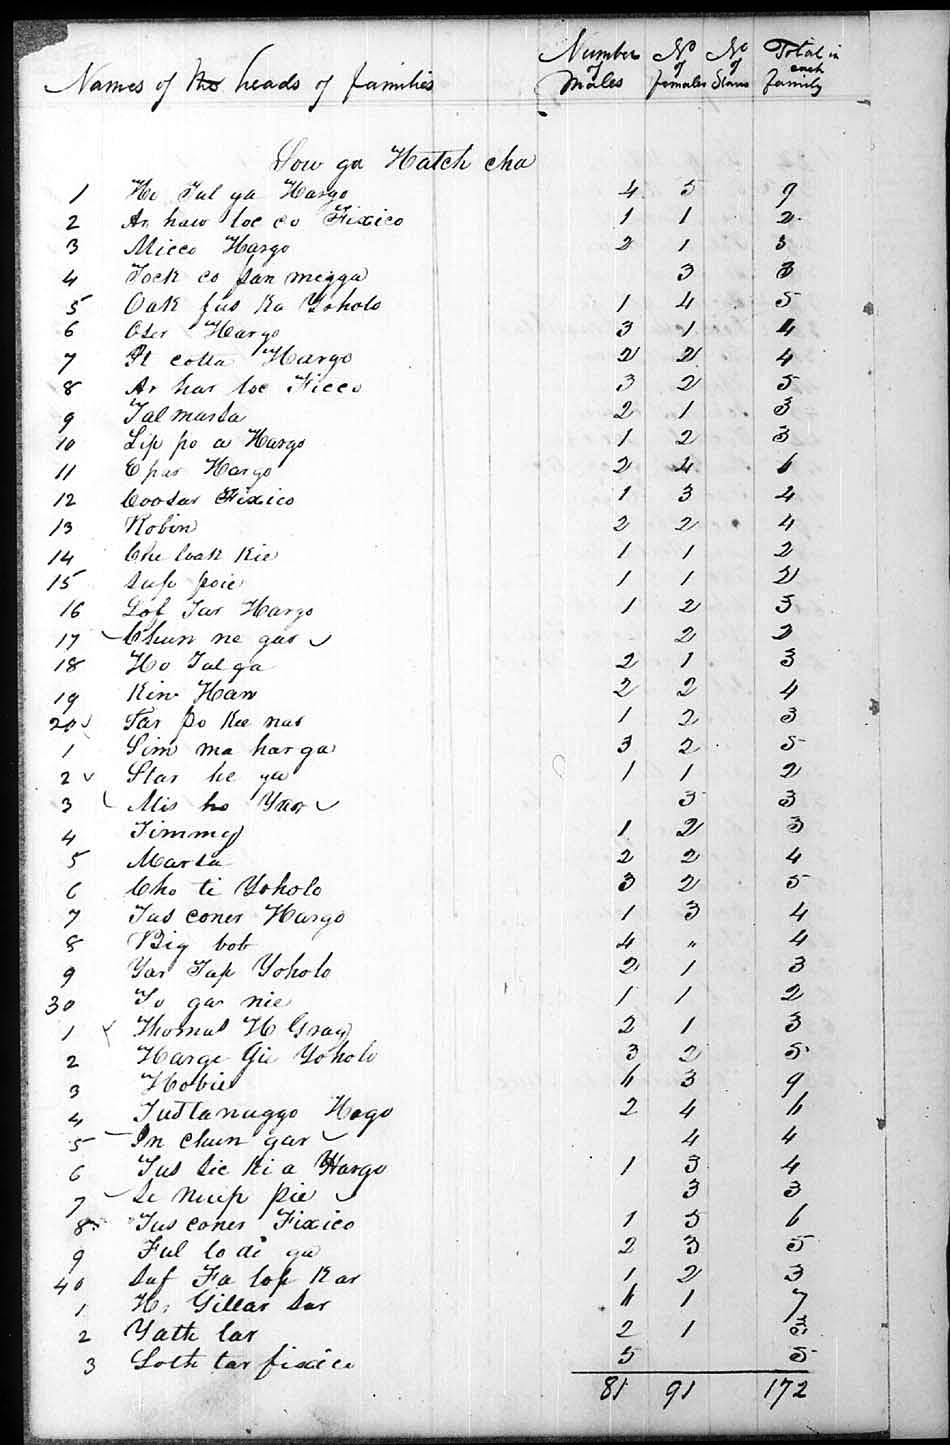 Names of the heads of families Number of Males No of females No of Slaves Total in each family
Sow ga Hatch cha
1 Ho Tul ga Hargo 4 5 9
2 Ar haw loc co Fixico 1 1 2
3 Micco Hargo 2 1 3
4 Tock co san megga 3 3
5 Oak fus ka Yoholo 1 4 5
6 Oser Hargo 3 1 4
7 Pt cotta Hargo 2 2 4
8 Ar har loc Ficco 3 2 5
9 Talmarsa 2 1 3
10 Lip po a Hargo 1 2 3
11 E par Hargo 2 4 6
12 Coosar Fixico 1 3 4
13 Robin 2 2 4
14 Che loak Kie 1 1 2
15 Sup poie 1 1 2
16 Lof Tar Hargo 1 2 3
17 Chun ne gar 2 2
18 Ho Tulga 2 1 3
19 Kin Haw 2 2 4
20 Tar po Kee nar 1 2 3
1 Sim ma har ga 3 2 5
2 Star he ya 1 1 2
3 Mis ho Yar 3 3
4 Timmy 1 2 3
5 Marsa 2 2 4
6 Cho ti Yoholo 3 2 5
7 Tus coner Hargo 1 3 4
8 Big bob 4 " 4
9 Yar Tap Yoholo 2 1 3
30 To ga nie 1 1 2
1 Thomas H Gray 2 1 3
2 Harge Gie Yoholo 3 2 5
3 Hobie 6 3 9
4 Tustanuggo Hago 2 4 6
5 In chun gar 4 4
6 Tus sic ki a Hargo 1 3 4
7 Se neup pie 3 3
8 Tus coner Fixico 1 5 6
9 Ful lo di ga 2 3 5
40 Suf Fa lop Kar 1 2 3
1 Ho Gillar sar 6 1 7
2 Yath lar 2 1 3
3 Loth tar fixico 5 5
81 91 172